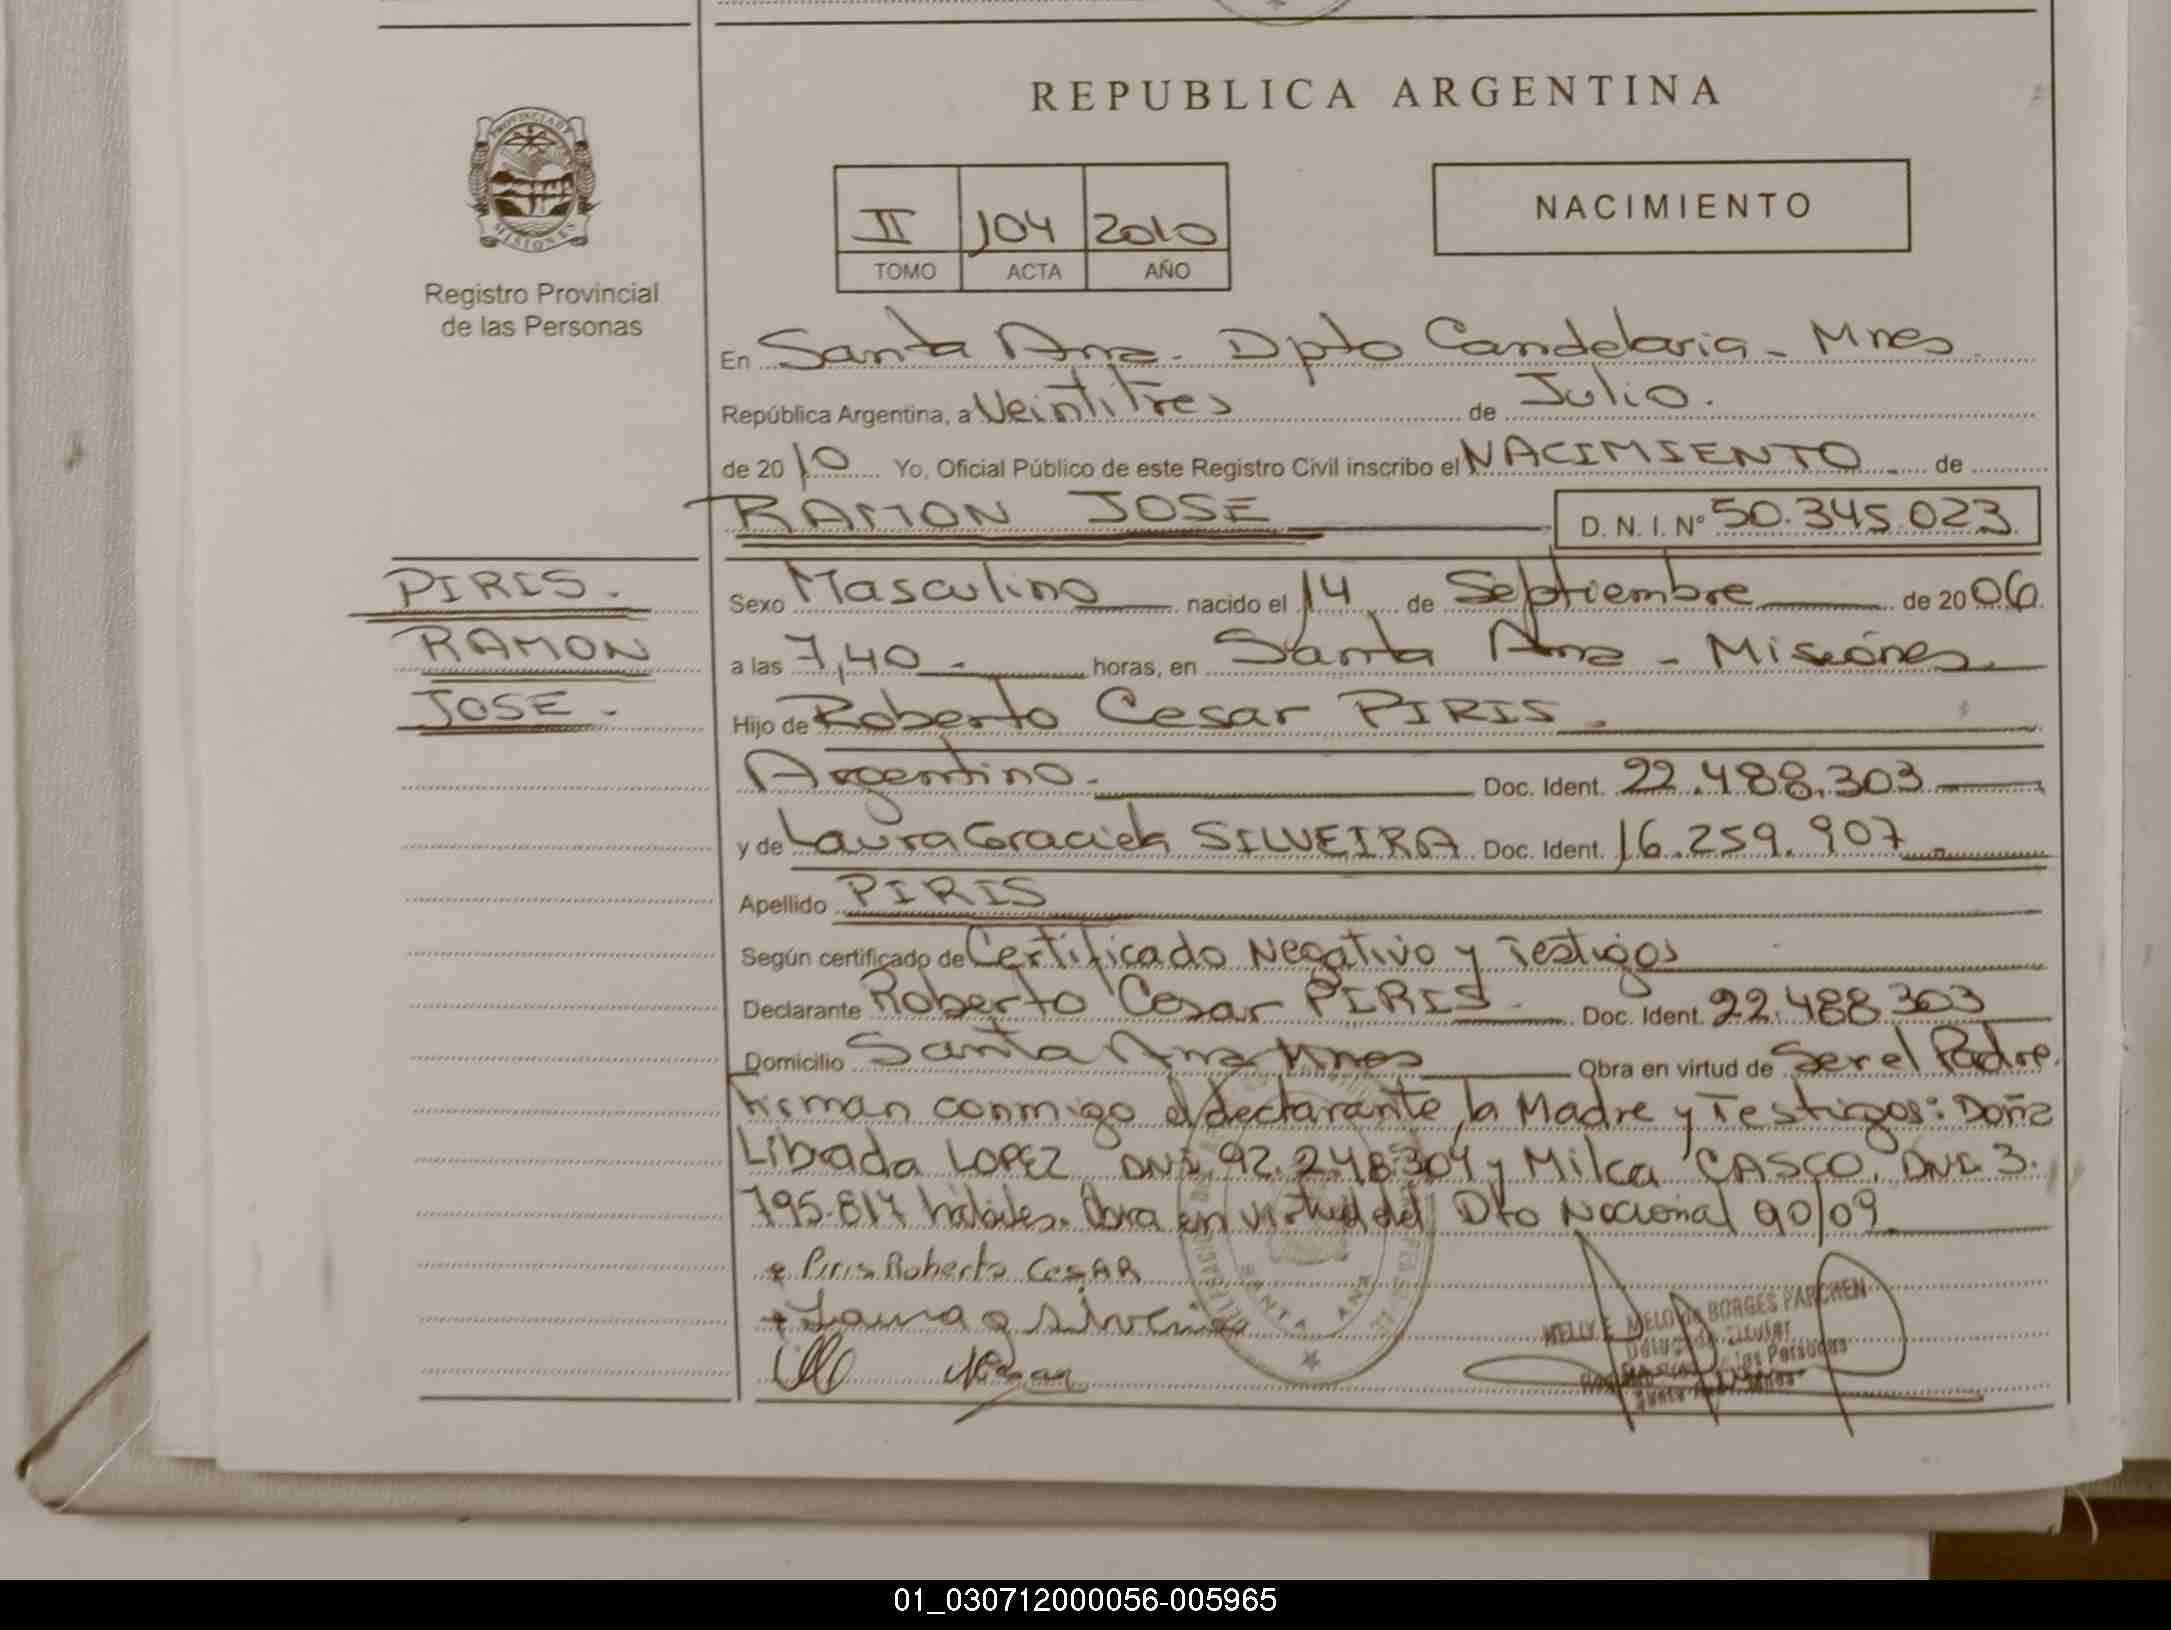 REPUBLICA ARGENTINA
PROVINCIA DE
MISIONES
Registro Provincial
de las Personas
II 104 2010
TOMO ACTA AÑO
NACIMIENTO
En Santa Ana - Dpto Candelaria - Mnes
República Argentina, a Veintitres de Julio.
de 2010 Yo, Oficial Público de este Registro Civil inscribo el NACIMIENTO de
RAMON JOSE D. N. I. Nº 50.345.023
PIRIS.
RAMON
JOSE.
Sexo Masculino nacido el 14 de Septiembre de 2006
a las 7,40 horas, en Santa Ana - Misiones
Hijo de Roberto Cesar PIRIS.
Argentino. Doc. Ident. 22.488.303
y de Laura Graciela SILVEIRA Doc. Ident. 16.259.907
Apellido PIRIS
Según certificado de Certificado Negativo y Testigos
Declarante Roberto Cesar PIRIS Doc. Ident. 22.488.303
Domicilio Santa Ana Mnes Obra en virtud de Ser el Padre.
Firman conmigo el declarante, la Madre y Testigos: Doña
Librada LOPEZ DNI. 92.248.304 y Milca CASCO, DNI. 3.
795.817 hábiles. Obra en virtud del Dto Nacional 90/09
Piris Roberto CesAR
Laura g Silveira
SANTA ANA
NELLY E. MELO de BORGES PARCHEN
Delegada Titular
de las Personas
Santa Ana
01_030712000056-005965